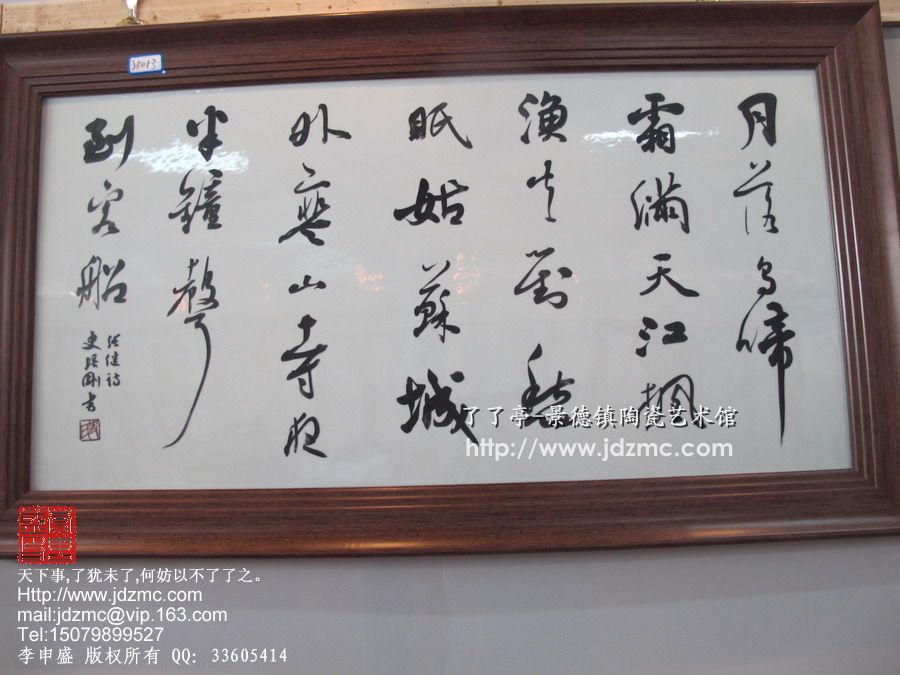 月落烏啼
霜滿天江楓
漁火對愁
眠姑蘇城
外寒山寺夜
半鐘聲
到客船
了了亭-景德镇陶瓷艺术馆
http://www.jdzmc.com
天下事,了犹未了,何妨以不了了之。
Http://www.jdzmc.com
mail:jdzmc@vip.163.com
Tel:15079899527
李申盛 版权所有 QQ: 33605414